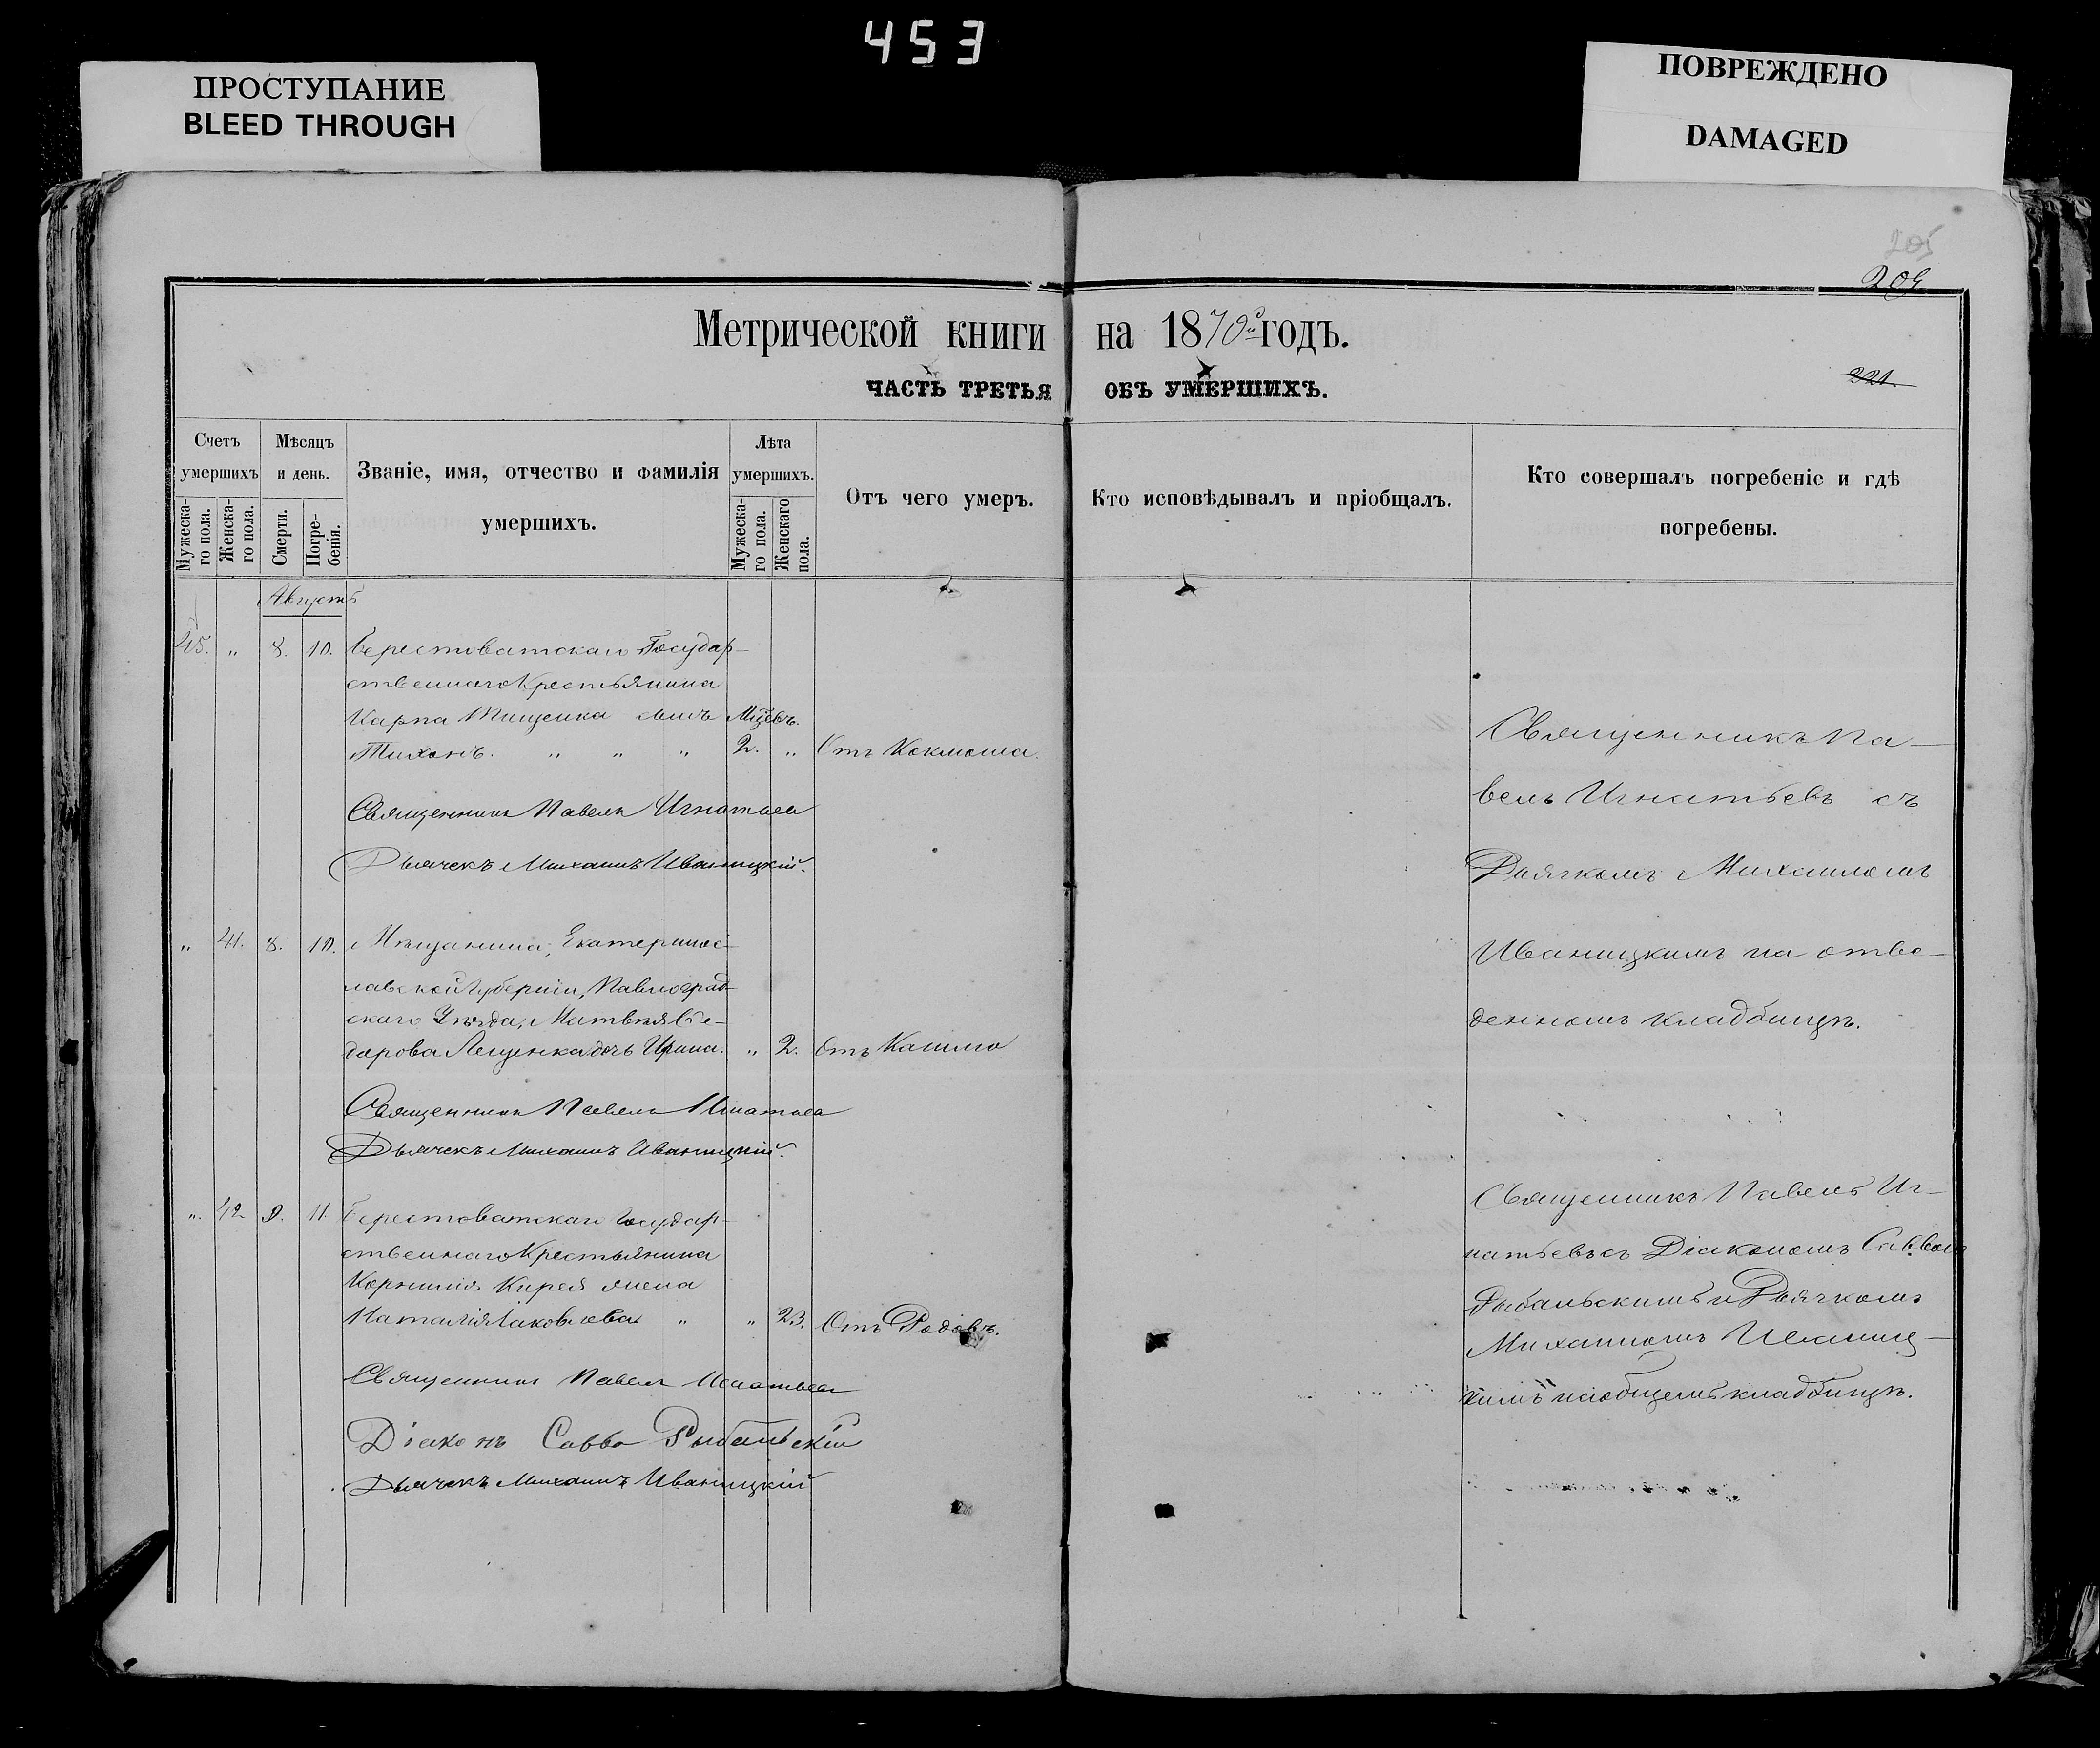 453
ПРОСТУПАНИЕ
BLEED THROUGH
ПОВРЕЖДЕНО
DAMAGED
205
Метрической книги на 1870й годъ.
ЧАСТЬ ТРЕТЬЯ ОБЪ УМЕРШИХЪ.
221.
Счетъ умершихъ
Мужеска-
го пола.
Женска-
го пола.
Мѣсяцъ и день.
Смерти.
Погре-
бенія.
Званіе, имя, отчество и фамилія
умершихъ.
Лѣта умершихъ.
Мужеска-
го пола.
Женскаго
пола.
Отъ чего умеръ.
Кто исповѣдывалъ и пріобщалъ.
Кто совершалъ погребеніе и гдѣ
погребены.
Августъ
45. „ 8. 10. Берестоватскаго Государ-
ственнаго Крестьянина
Карпа Тищенка сынъ Мцевъ.
Тихонъ. „ „ „ 2. „ Отъ Коклюша.
Священникъ Павелъ Игнатьев
Дьячекъ Михаилъ Иваницкій.
Священникъ Па-
велъ Игнатьевъ съ
Дьячкомъ Михаиломъ
Иваницкимъ на отве-
денномъ кладбищѣ.
„ 41. 8. 10. Мѣщанина, Екатеринос-
лавской Губерніи, Павлоград-
скаго Уѣзда, Матвѣя Ѳе-
дорова Лещенка дочь Ирина. „ 2. Отъ Кашлю
Священникъ Павелъ Игнатьев
Дьячекъ Михаилъ Иваницкій.
„. 42. 9. 11. Берестоватскаго Государ-
ственнаго Крестьянина
Корнилія Кирея жена
Наталія Яковлева „ „ 23. Отъ Родовъ.
Священникъ Павелъ Игнатьев
Діаконъ Савва Рыбальскій
Дьячекъ Михаилъ Иваницкій
Священникъ Павелъ Иг-
натьевъ съ Діакономъ Саввою
Рыбальскимъ и Дьячкомъ
Михаиломъ Иваниц-
кимъ на общемъ кладбищѣ.